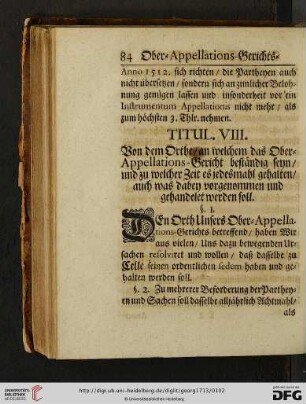 84 Ober-Appellations-Gerichts-
Anno 1512. sich richten / die Partheyen auch
nicht übersetzen / sondern sich an zimlicher Beloh-
nung genügen lassen und insonderheit vor ein
Instrumentum Appellationis nicht mehr / als
zum höchsten 3. Thlr. nehmen.
TITUL. VIII.
Von dem Orthe / an welchem das Ober-
Appellations-Gericht beständig seyn /
und zu welcher Zeit es jedesmahl gehalten /
auch was dabey vorgenommen und
gehandelet werden soll.
§. 1.
DEn Orth Unsers Ober-Appella-
tions-Gerichts betreffend / haben Wir
aus vielen / Uns dazu bewegenden Ur-
sachen resolviret und wollen / daß dasselbe zu
Celle seinen ordentlichen sedem haben und ge-
halten werden soll.
§. 2. Zu mehrerer Beforderung der Parthey-
en und Sachen soll dasselbe alljährlich Achtmahl /
als
UNIVERSITÄTS-
BIBLIOTHEK
HEIDELBERG
http://digi.ub.uni-heidelberg.de/diglit/georg1713/0102
© Universitätsbibliothek Heidelberg
gefördert durch die
DFG